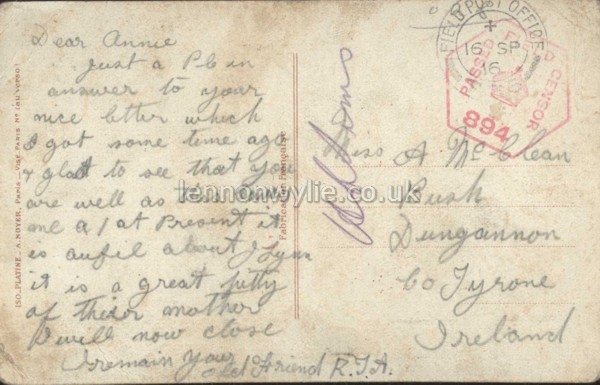 Dear Annie
Just a P C in
answer to your
nice letter which
I got some time ago
& glad to see that you
are well as this
me a/1 at Present it
is aufil about J Lynn
it is a great pitty
of their mother
I will now close
I remain your old Friend R.J.A.
ISO-PLATINE. A. NOYER, Paris
Fabrication Française
FIELD POST OFFICE
16 SP
16
PASSED FIELD CENSOR
894
Miss A McClean
Bush
Dungannon
Co Tyrone
Ireland
lennonwylie.co.uk